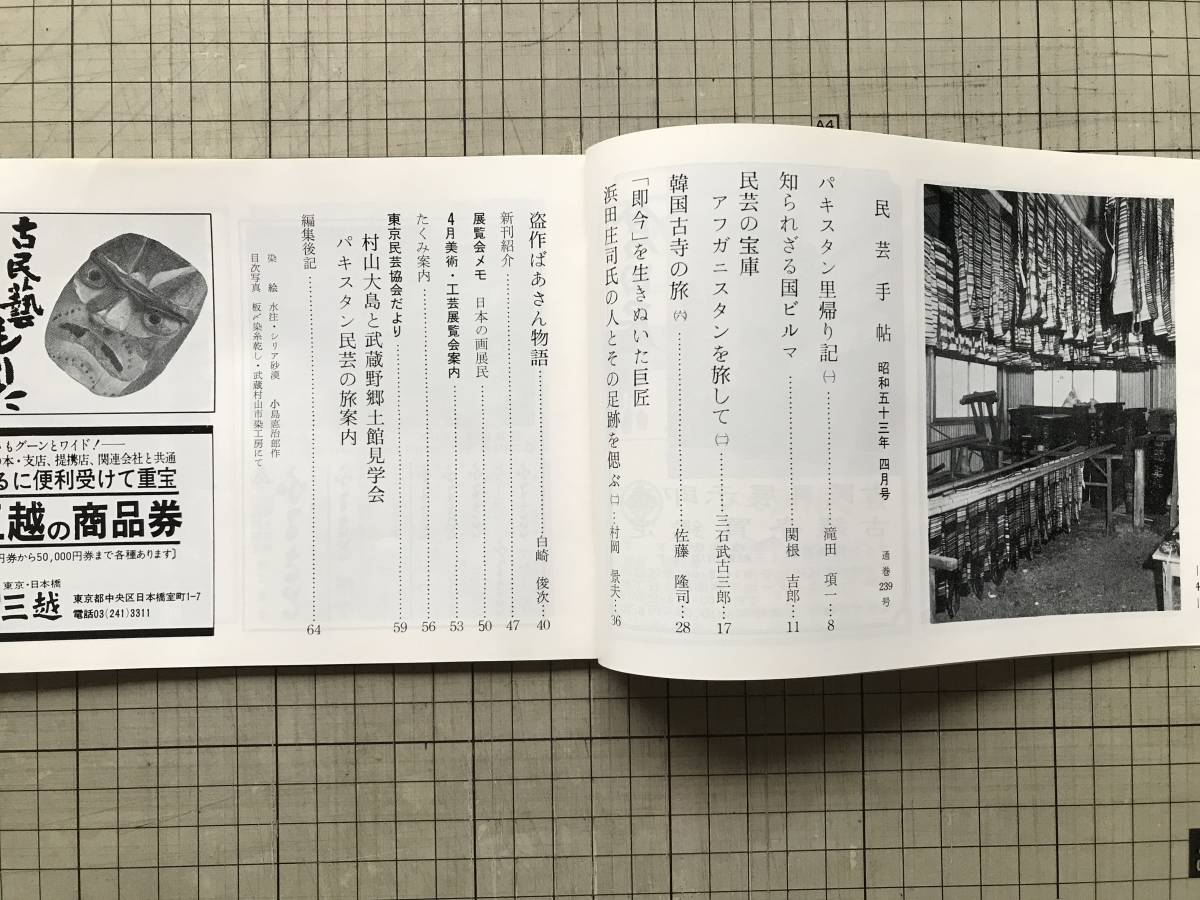 民芸手帖 昭和五十三年 四月号 通巻239号
パキスタン里帰り記㈠……滝田 項一…8
知られざる国ビルマ……関根 吉郎…11
民芸の宝庫
アフガニスタンを旅して㈡……三石武古三郎…17
韓国古寺の旅㈥……佐藤 隆司…28
「即今」を生きぬいた巨匠
浜田庄司氏の人とその足跡を偲ぶ㈡…村岡 景夫…36
盗作ばあさん物語……白崎 俊次…40
新刊紹介……47
展覧会メモ 日本の画展民……50
4月美術・工芸展覧会案内……53
たくみ案内……56
東京民芸協会だより……59
村山大島と武蔵野郷土館見学会
パキスタン民芸の旅案内
編集後記……64
染 絵 水注・シリア砂漠 小島悳治郎作
目次写真 板〆染糸乾し・武蔵村山市染工房にて
古民藝
もりた
もグーンとワイド!──
本・支店、提携店、関連会社と共通
るに便利受けて重宝
越の商品券
円券から50,000円券まで各種あります]
東京・日本橋
三越
東京都中央区日本橋室町1-7
電話03(241)3311
A4